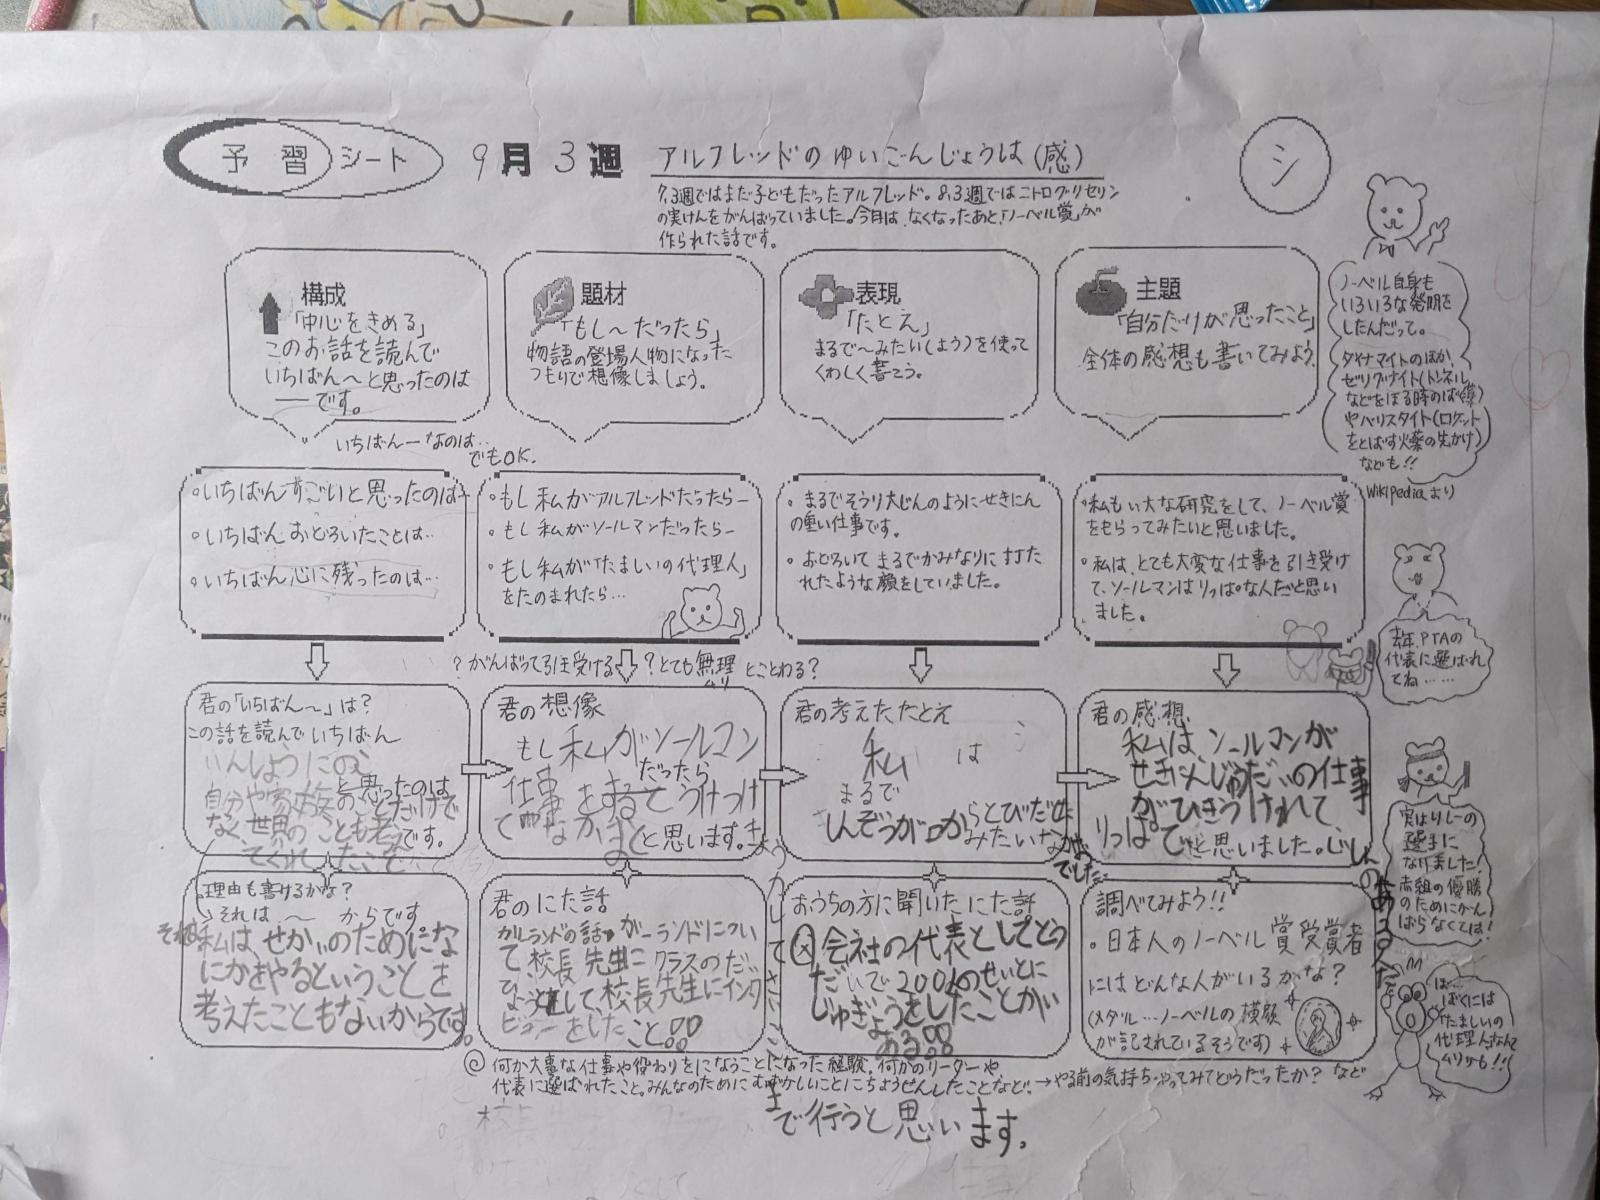 予習シート 9月3週 アルフレッドのゆいごんじょうは(感)
シ
7.3週ではまだ子どもだったアルフレッド。8.3週ではニトログリセリン
の実けんをがんばっていました。今月は、なくなったあと、「ノーベル賞」が
作られた話です。
構成
「中心をきめる」
このお話を読んで
いちばん〜と思ったのは
――です。
いちばん―なのは…
でもOK.
題材
「もし〜だったら」
物語の登場人物になった
つもりで想像しましょう。
表現
「たとえ」
まるで〜みたい(よう)を使って
くわしく書こう。
主題
「自分だけが思ったこと」
全体の感想も書いてみよう
ノーベル自身も
いろいろな発明を
したんだって。
ダイナマイトのほか、
ゼリグナイト(トンネル
などをほる時のばく薬)
やバリスタイト(ロケット
をとばす火薬の先がけ)
なども!!
Wikipediaより
・いちばんすごいと思ったのは
・いちばんおどろいたことは…
・いちばん心に残ったのは…
・もし私がアルフレッドだったら―
・もし私がソールマンだったら―
・もし私が「たましいの代理人」
をたのまれたら…
?がんばって引き受ける ?とても無理 とことわる?
ムリ
・まるでそうり大じんのようにせきにん
の重い仕事です。
・おどろいてまるでかみなりに打た
れたような顔をしていました。
・私もい大な研究をして、ノーベル賞
をもらってみたいと思いました。
・私は、とても大変な仕事を引き受け
て、ソールマンはりっぱな人だと思い
ました。
去年、PTAの
代表に選ばれ
てね……
君の「いちばん〜」は?
この話を読んでいちばん
いんしょうにのこ
と思ったのは
自分や家族のことだけで
なく世界のことも考え
てくれたこと
です。
君の想像
もし私がソールマン
だったら
仕事をするとうけつけ
て
なかま
と思います。
君の考えたたとえ
私は
まるで
しんぞうが口からとびだす
みたいな
でした
君の感想
私は、ソールマンが
せきにんじゅうだいの仕事
がひきうけれて
りっぱでと思いました。
実はリレーの
選手に
なりました!
赤組の優勝
のためにがん
ばらなくては!
理由も書けるかな?
→それは 〜 からです
それは私は、せかいのためにな
にかをやるということを
考えたこともないからです。
君のにた話
ガーランドの話 ガーランドについ
て、校長先生に クラスのだい
ひょうとして、校長先生にインタ
ビューをしたこと!!
おうちの方に聞いたにた話
会社の代表としてとう
だいで200人のせいとに
じゅぎょうをしたことがい
ある!!
調べてみよう!!
・日本人のノーベル賞受賞者
にはどんな人がいるかな?
(メダル…ノーベルの横顔
が記されているそうです)
ぼ…
ぼくには
「たましいの
代理人」なんて
ムリかも!!
◎何か大事な仕事や役わりをになうことになった経験。何かのリーダーや
代表に選ばれたこと。みんなのためにむずかしいことにちょうせんしたことなど。→やる前の気持ち・やってみてどうだったか?など
まで行うと思います。